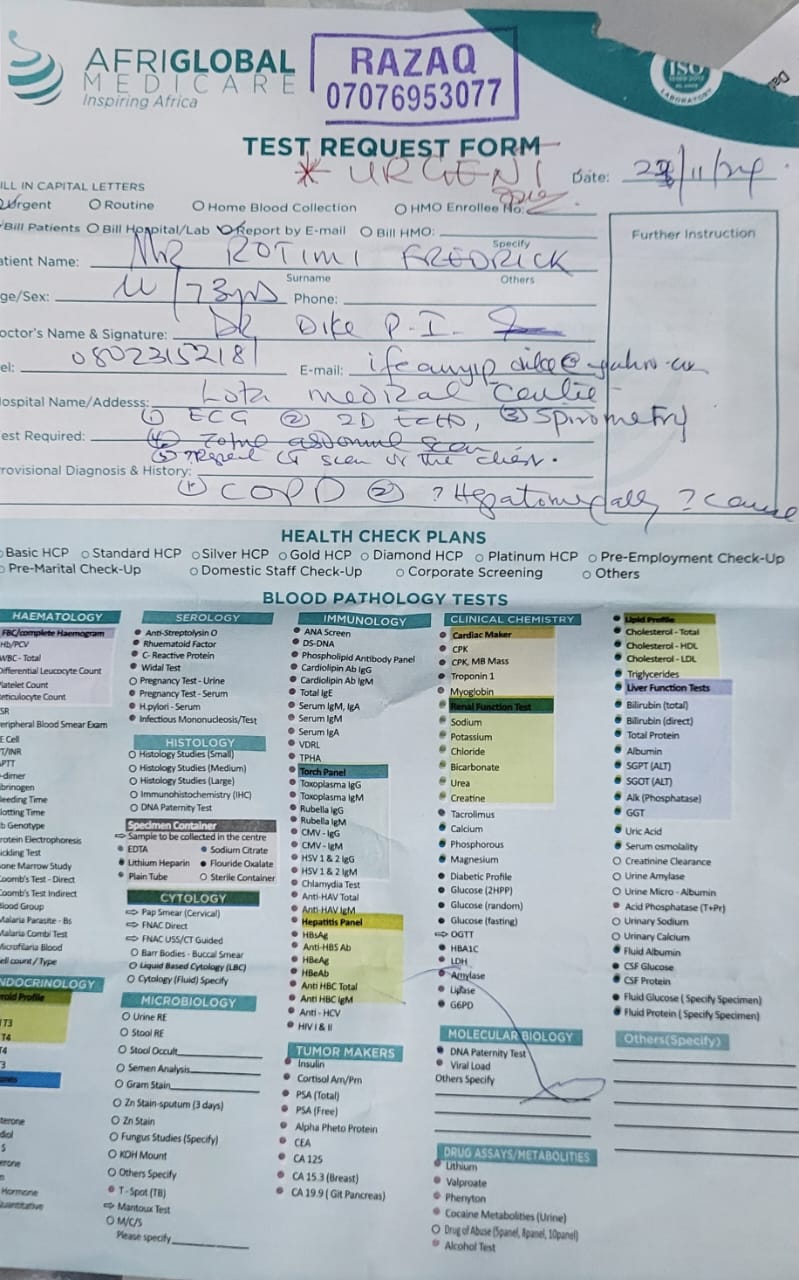 AFRIGLOBAL
MEDICARE
Inspiring Africa
RAZAQ
07076953077
ISO
LABORATORY
TEST REQUEST FORM
* URGENT
Date: /11/24
ILL IN CAPITAL LETTERS
Urgent Routine Home Blood Collection HMO Enrollee No:
Bill Patients Bill Hospital/Lab Report by E-mail Bill HMO:
Specify
Further Instruction
atient Name: MR ROTIMI FREDRICK
Surname Others
ge/Sex: M/73yrs Phone:
octor's Name & Signature: DR DIKE P.I.
el: 08023152181 E-mail:
ospital Name/Addesss: Lota medical Centre
① ECG ② 2D ECHO, ③ Spirometry
est Required: ④
⑤ repeat CT scan of the chest.
rovisional Diagnosis & History:
① COPD ② ? Hepatomegally ? cause
HEALTH CHECK PLANS
Basic HCP Standard HCP Silver HCP Gold HCP Diamond HCP Platinum HCP Pre-Employment Check-Up
Pre-Marital Check-Up Domestic Staff Check-Up Corporate Screening Others
BLOOD PATHOLOGY TESTS
HAEMATOLOGY
FBC/complete Haemogram
Hb/PCV
WBC - Total
Differential Leucocyte Count
latelet Count
eticulocyte Count
SR
eripheral Blood Smear Exam
E Cell
T/INR
PTT
-dimer
brinogen
leeding Time
lotting Time
b Genotype
rotein Electrophoresis
ckling Test
one Marrow Study
oomb's Test - Direct
oomb's Test Indirect
lood Group
alaria Parasite - Bs
alaria Combi Test
icrofilaria Blood
ell count / Type
NDOCRINOLOGY
roid Profile
T3
T4
T4
3
ones
terone
diol
S
erone
n
Hormone
uantitative
SEROLOGY
Anti-Streptolysin O
Rhuematoid Factor
C- Reactive Protein
Widal Test
Pregnancy Test - Urine
Pregnancy Test - Serum
H.pylori - Serum
Infectious Mononudeosis/Test
HISTOLOGY
Histology Studies (Small)
Histology Studies (Medium)
Histology Studies (Large)
Immunohistochemistry (IHC)
DNA Paternity Test
Specimen Container
Sample to be collected in the centre
EDTA Sodium Citrate
Lithium Heparin Flouride Oxalate
Plain Tube Sterile Container
CYTOLOGY
Pap Smear (Cervical)
FNAC Direct
FNAC USS/CT Guided
Barr Bodies - Buccal Smear
Liquid Based Cytology (LBC)
Cytology (Fluid) Specify
MICROBIOLOGY
Urine RE
Stool RE
Stool Occult
Semen Analysis
Gram Stain
Zn Stain-sputum (3 days)
Zn Stain
Fungus Studies (Specify)
KOH Mount
Others Specify
T - Spot (TB)
Mantoux Test
M/C/S
Please specify
IMMUNOLOGY
ANA Screen
DS-DNA
Phospholipid Antibody Panel
Cardiolipin Ab IgG
Cardiolipin Ab IgM
Total IgE
Serum IgM, IgA
Serum IgM
Serum IgA
VDRL
TPHA
Torch Panel
Toxoplasma IgG
Toxoplasma IgM
Rubella IgG
Rubella IgM
CMV - IgG
CMV - IgM
HSV 1 & 2 IgG
HSV 1 & 2 IgM
Chlamydia Test
Anti-HAV Total
Anti-HAV IgM
Hepatitis Panel
HBsAg
Anti-HBS Ab
HBeAg
HBeAb
Anti HBC Total
Anti HBC IgM
Anti - HCV
HIV I & II
TUMOR MAKERS
Insulin
Cortisol Am/Pm
PSA (Total)
PSA (Free)
Alpha Pheto Protein
CEA
CA 125
CA 15.3 (Breast)
CA 19.9 ( Git Pancreas)
CLINICAL CHEMISTRY
Cardiac Maker
CPK
CPK, MB Mass
Troponin 1
Myoglobin
Renal Function Test
Sodium
Potassium
Chloride
Bicarbonate
Urea
Creatine
Tacrolimus
Calcium
Phosphorous
Magnesium
Diabetic Profile
Glucose (2HPP)
Glucose (random)
Glucose (fasting)
OGTT
HBA1C
LDH
Amylase
Liplase
G6PD
MOLECULAR BIOLOGY
DNA Paternity Test
Viral Load
Others Specify
DRUG ASSAYS/METABOLITIES
Lithium
Valproate
Phenyton
Cocaine Metabolities (Urine)
Drug of Abuse (5panel, 8panel, 10panel)
Alcohol Test
Lipid Profile
Cholesterol - Total
Cholesterol - HDL
Cholesterol - LDL
Triglycerides
Liver Function Tests
Bilirubin (total)
Bilirubin (direct)
Total Protein
Albumin
SGPT (ALT)
SGOT (ALT)
Alk (Phosphatase)
GGT
Uric Acid
Serum osmolality
Creatinine Clearance
Urine Amylase
Urine Micro - Albumin
Acid Phosphatase (T+Pr)
Urinary Sodium
Urinary Calcium
Fluid Albumin
CSF Glucose
CSF Protein
Fluid Glucose ( Specify Specimen)
Fluid Protein ( Specify Specimen)
Others(Specify)